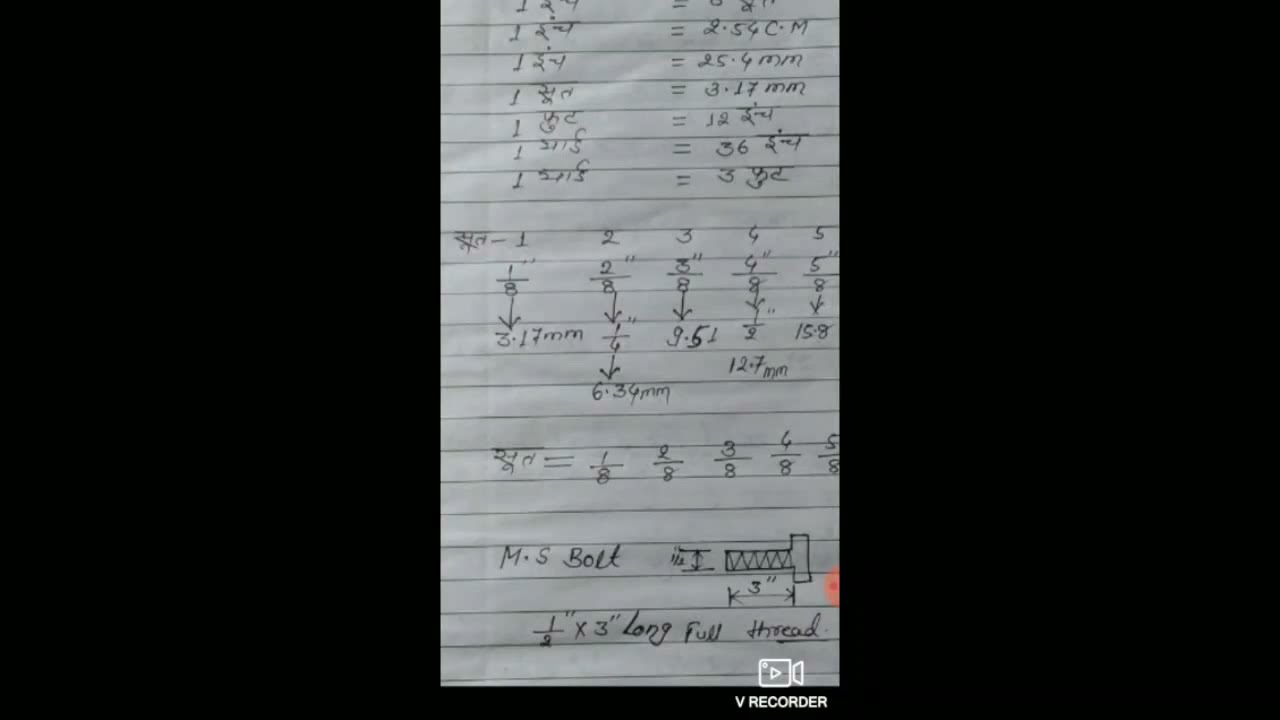 1 इंच = 8 सूत
1 इंच = 2.54 C.M
1 इंच = 25.4 mm
1 सूत = 3.17 mm
1 फुट = 12 इंच
1 यार्ड = 36 इंच
1 यार्ड = 3 फुट
सूत - 1 2 3 4 5
1/8" 2/8" 3/8" 4/8" 5/8"
3.17mm 1/4" 9.51 1/2" 15.8
12.7mm
6.34mm
सूत = 1/8 2/8 3/8 4/8 5/8
M.S Bolt 1/2"
3"
1/2" X 3" Long Full thread.
V RECORDER